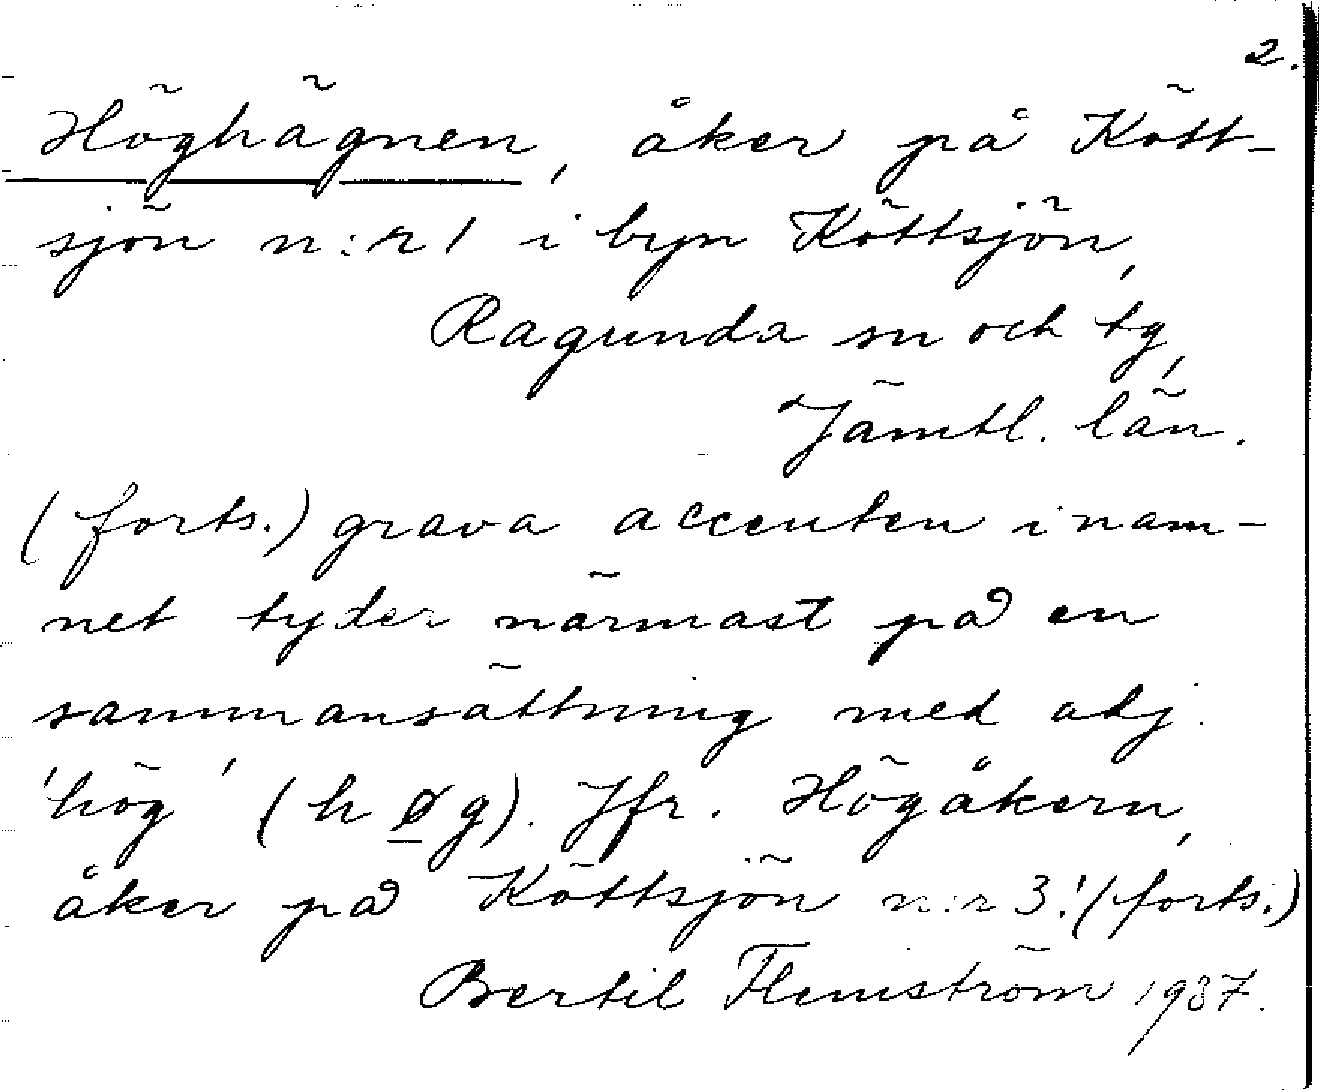 2.
Höghägnen, åker på Kött-
sjön n:r 1 i byn Köttsjön,
Ragunda sn och tg,
Jämtl. län.
(forts.) grava accenten i nam-
net tyder närmast på en
sammansättning med adj.
'hög' (høg). Jfr. Högåkern,
åker på Köttsjön n:r 3! (forts.)
Bertil Flemström 1937.